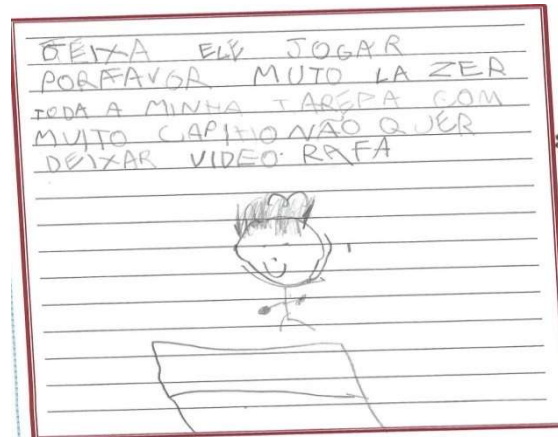 DEIXA ELE JOGAR
PORFAVOR MUTO LA ZER
TODA A MINHA TAREPA COM
MUITO CAPIHO NÃO QUER
DEIXAR VIDEO RAFA